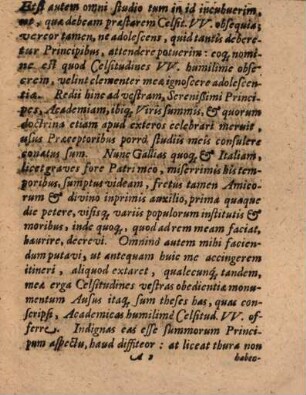 Etsi autem omni studio tum in id incubuerim,
ut, quæ debeam præstarem Celsit. VV. obsequia;
vereor tamen, ne adolescens, quid tantis debere-
tur Principibus, attendere potuerim: eoq; nomi-
ne est quod Celsitudines VV. humilime obse-
crem, velint clementer meæ ignoscere adolescen-
tiæ. Redii hinc ad vestram, Serenissimi Princi-
pes, Academiam, ibiq; Viris summis, & quorum
doctrina etiam apud exteros celebrari meruit
usus Præceptoribus porrò studiis meis consulere
conatus sum. Nunc Gallias quoq; & Italiam,
licet graves fore Patri meo, miserrimis his tem-
poribus, sumptus videam, fretus tamen Amico-
rum & divino inprimis auxilio, prima quaque
die petere, visisq; variis populorum institutis &
moribus, inde quoq; quod ad rem meam faciat,
haurire, decrevi. Omnino autem mihi facien-
dum putavi, ut antequam huic me accingerem
itineri, aliquod extaret, qualecunq; tandem,
mea erga Celsitudines vestras obedientiæ monu-
mentum Ausus itaq; sum theses has, quas con-
scripsi, Academicas humilimè Celsitud. VV. of-
ferre. Indignas eas esse summorum Princi-
pum aspectu, haud diffiteor: at liceat thura non
A 2 habeo-